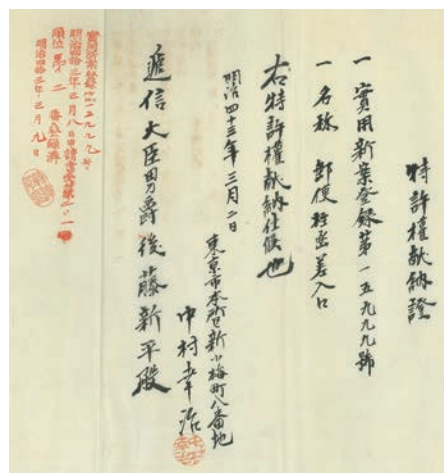 特許權献納證
一 實用新案登録第一五九九九號
一 名称 郵便柱函差入口
右特許權献納仕候也
明治四十三年三月二日
東京市本所区新小梅町八番地
中村幸治
逓信大臣男爵後藤新平殿
實用新案登録第一五九九九号
明治四拾三年三月八日申請書受第二、一
順位第二番登録濟
明治四拾三年三月九日